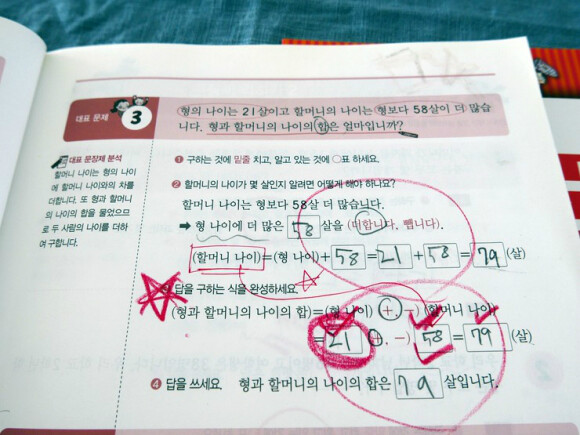 대표 문제 3
형의 나이는 21살이고 할머니의 나이는 형보다 58살이 더 많습
니다. 형과 할머니의 나이의 합은 얼마입니까?
대표 문장제 분석
할머니 나이는 형의 나이
에 할머니 나이와의 차를
더합니다. 또 형과 할머니
의 나이의 합을 물었으므
로 두 사람의 나이를 더하
여 구합니다.
❶ 구하는 것에 밑줄 치고, 알고 있는 것에 ○표 하세요.
❷ 할머니의 나이가 몇 살인지 알려면 어떻게 해야 하나요?
할머니의 나이는 형보다 58살 더 많습니다.
➡ 형 나이에 더 많은 58 살을 (더합니다, 뺍니다).
(할머니 나이)=(형 나이)+58=21+58=79(살)
답을 구하는 식을 완성하세요.
(형과 할머니의 나이의 합)=(형 나이)(+, -)(할머니 나이)
=21(+, -)58=79(살)
❹ 답을 쓰세요. 형과 할머니의 나이의 합은 79 살입니다.